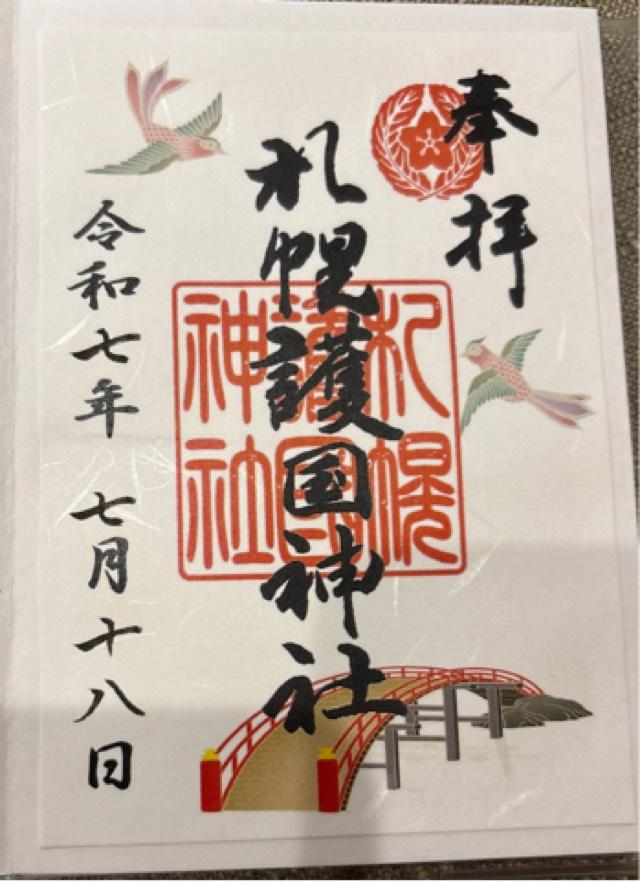 奉拝
札幌護国神社
札幌
護國
神社
令和七年 七月十八日